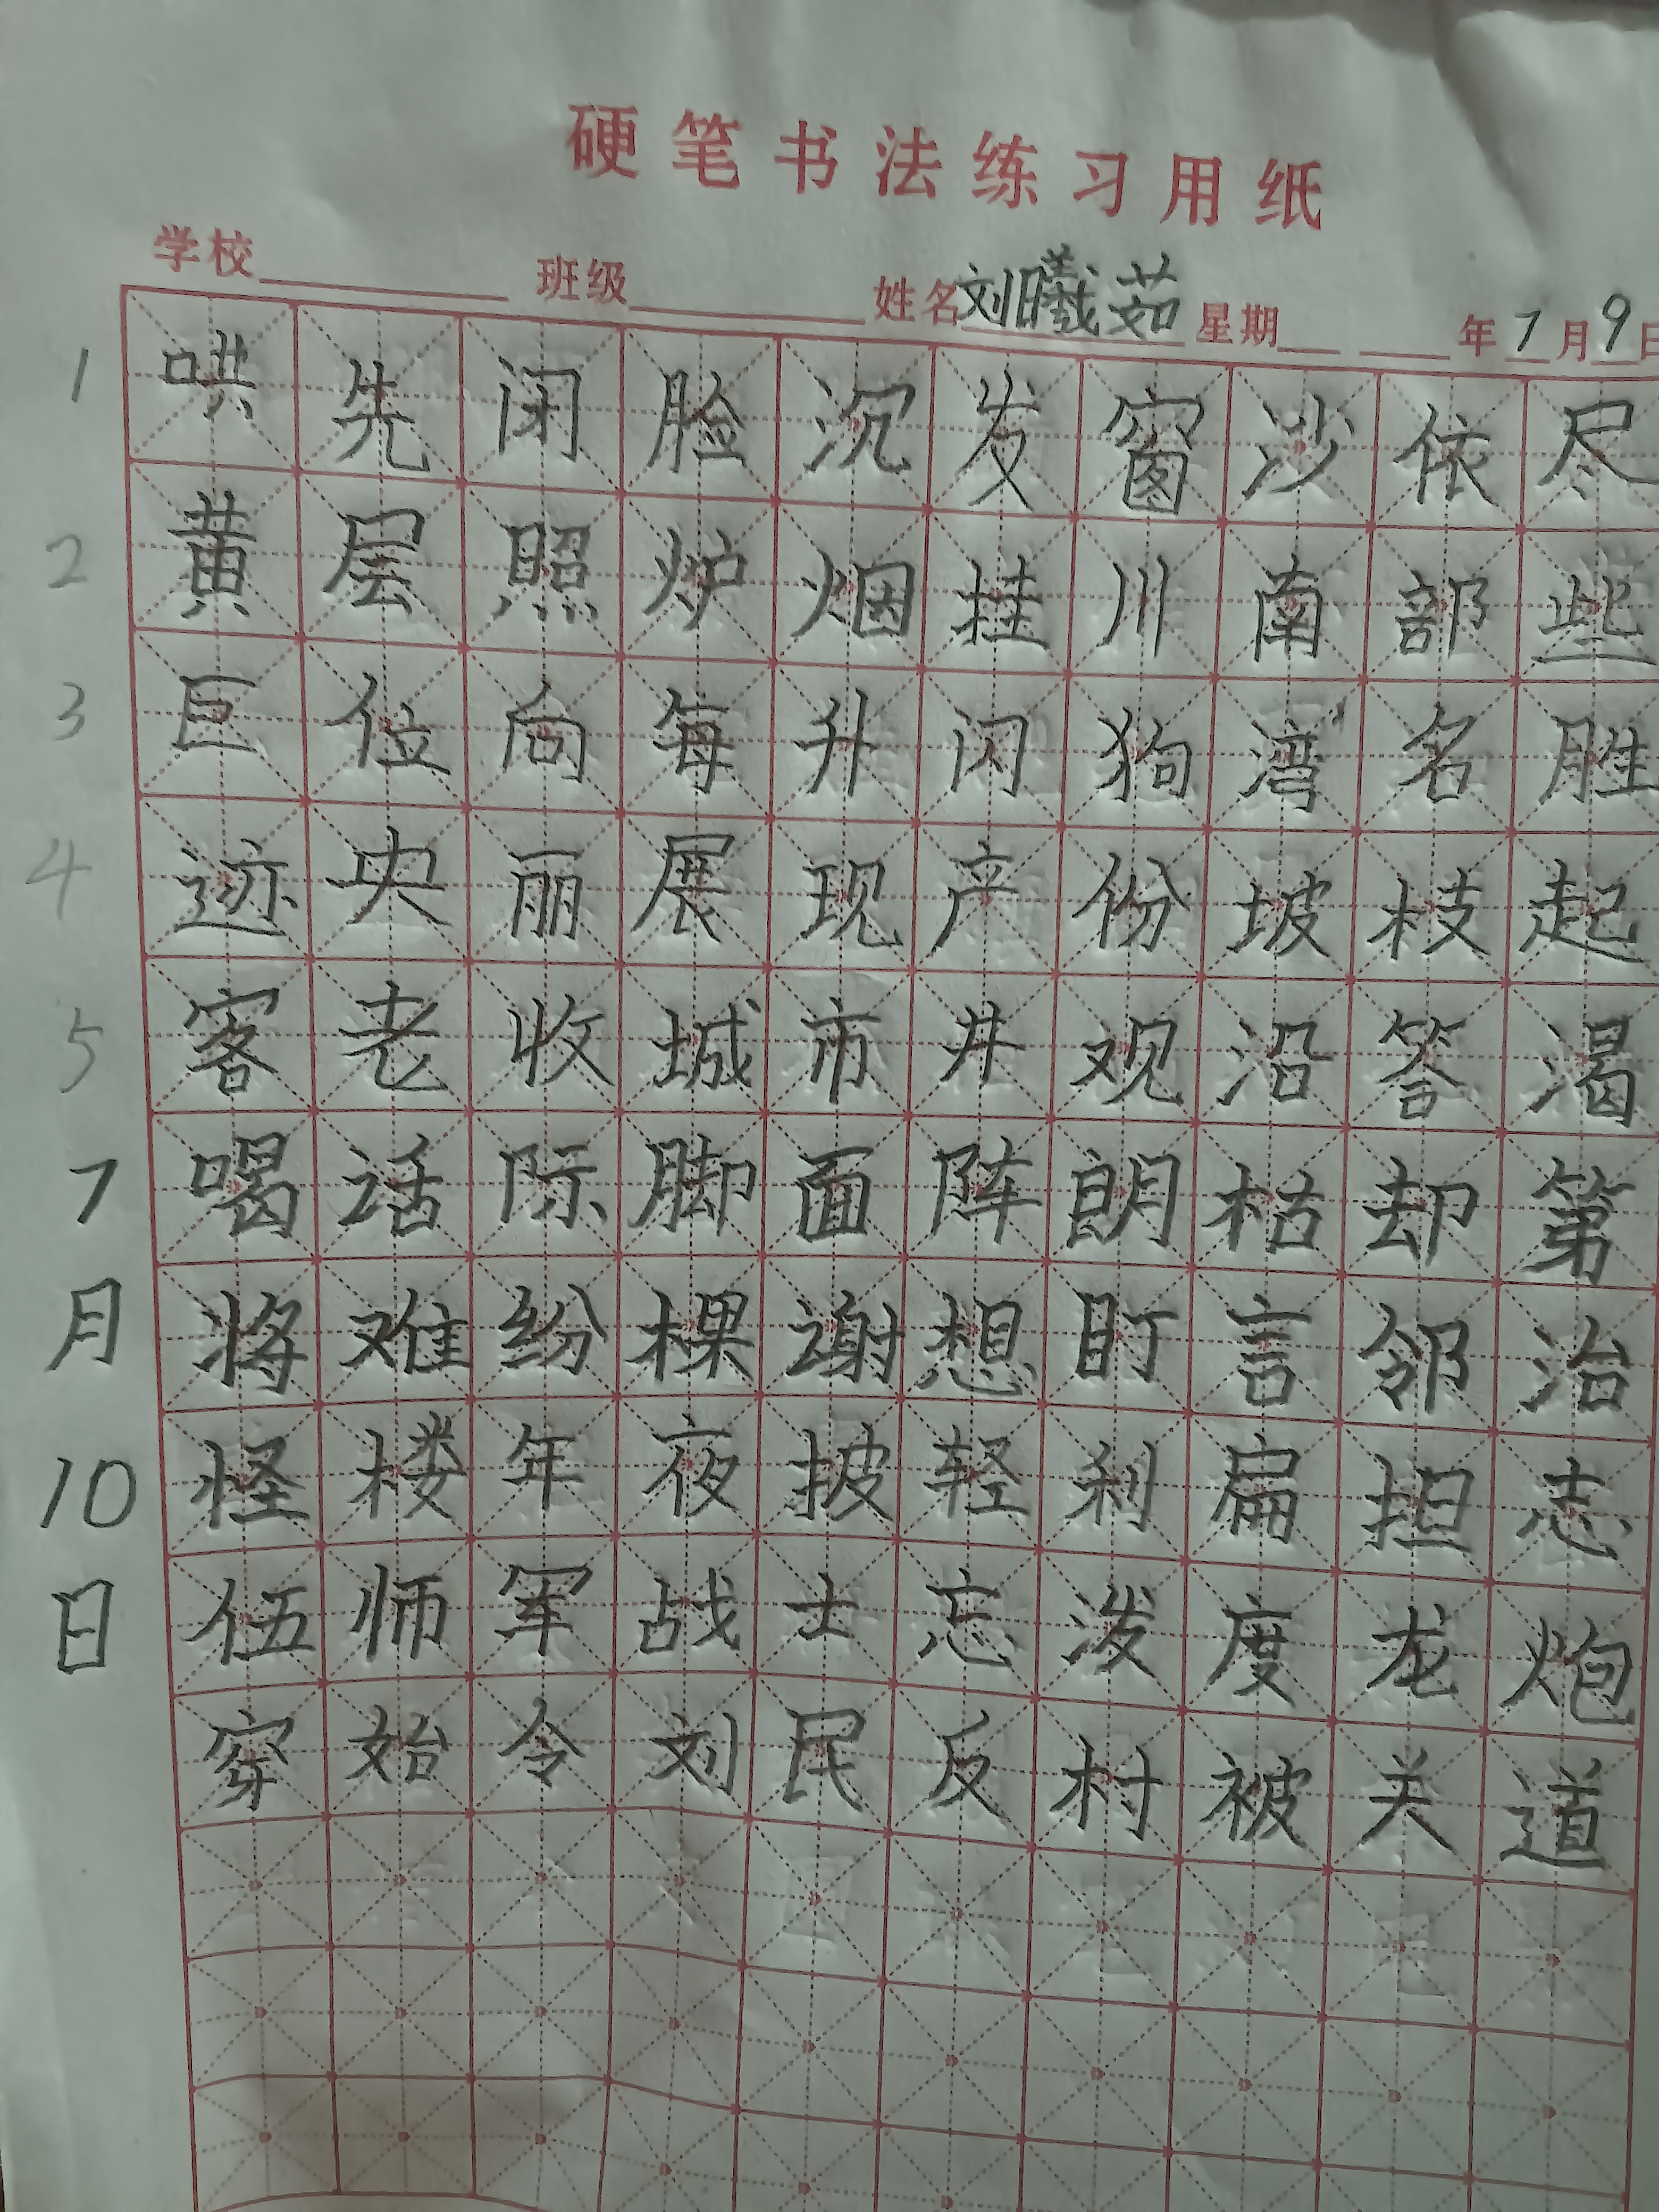 硬笔书法练习用纸
学校 班级 姓名 刘曦茹 星期 年 7 月 9 日
1 哄 先 闭 脸 沉 发 窗 沙 依 尽
2 黄 层 照 炉 烟 挂 川 南 部 些
3 巨 位 向 每 升 闪 狗 湾 名 胜
4 迹 央 丽 展 现 产 份 坡 枝 起
5 客 老 收 城 市 井 观 沿 答 渴
7 喝 话 际 脚 面 阵 朗 枯 却 第
月 将 难 纷 棵 谢 想 盯 言 邻 治
10 怪 楼 年 夜 披 轻 利 扁 担 志
日 伍 师 军 战 士 忘 泼 度 龙 炮
穿 始 令 刘 民 反 村 被 关 道